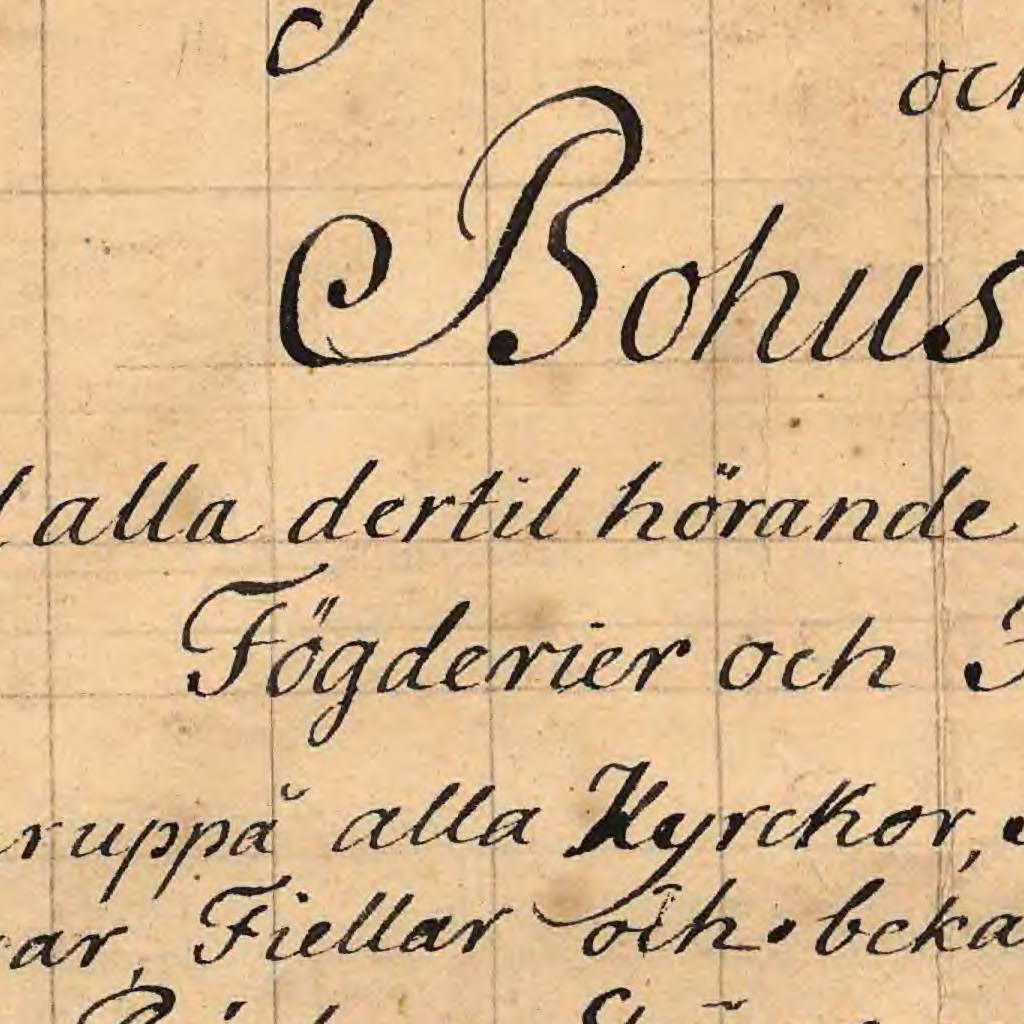 och
Bohus
alla dertil hörande
Fögderier och
ruppå alla Kyrckor,
ar, Fiellar och beka